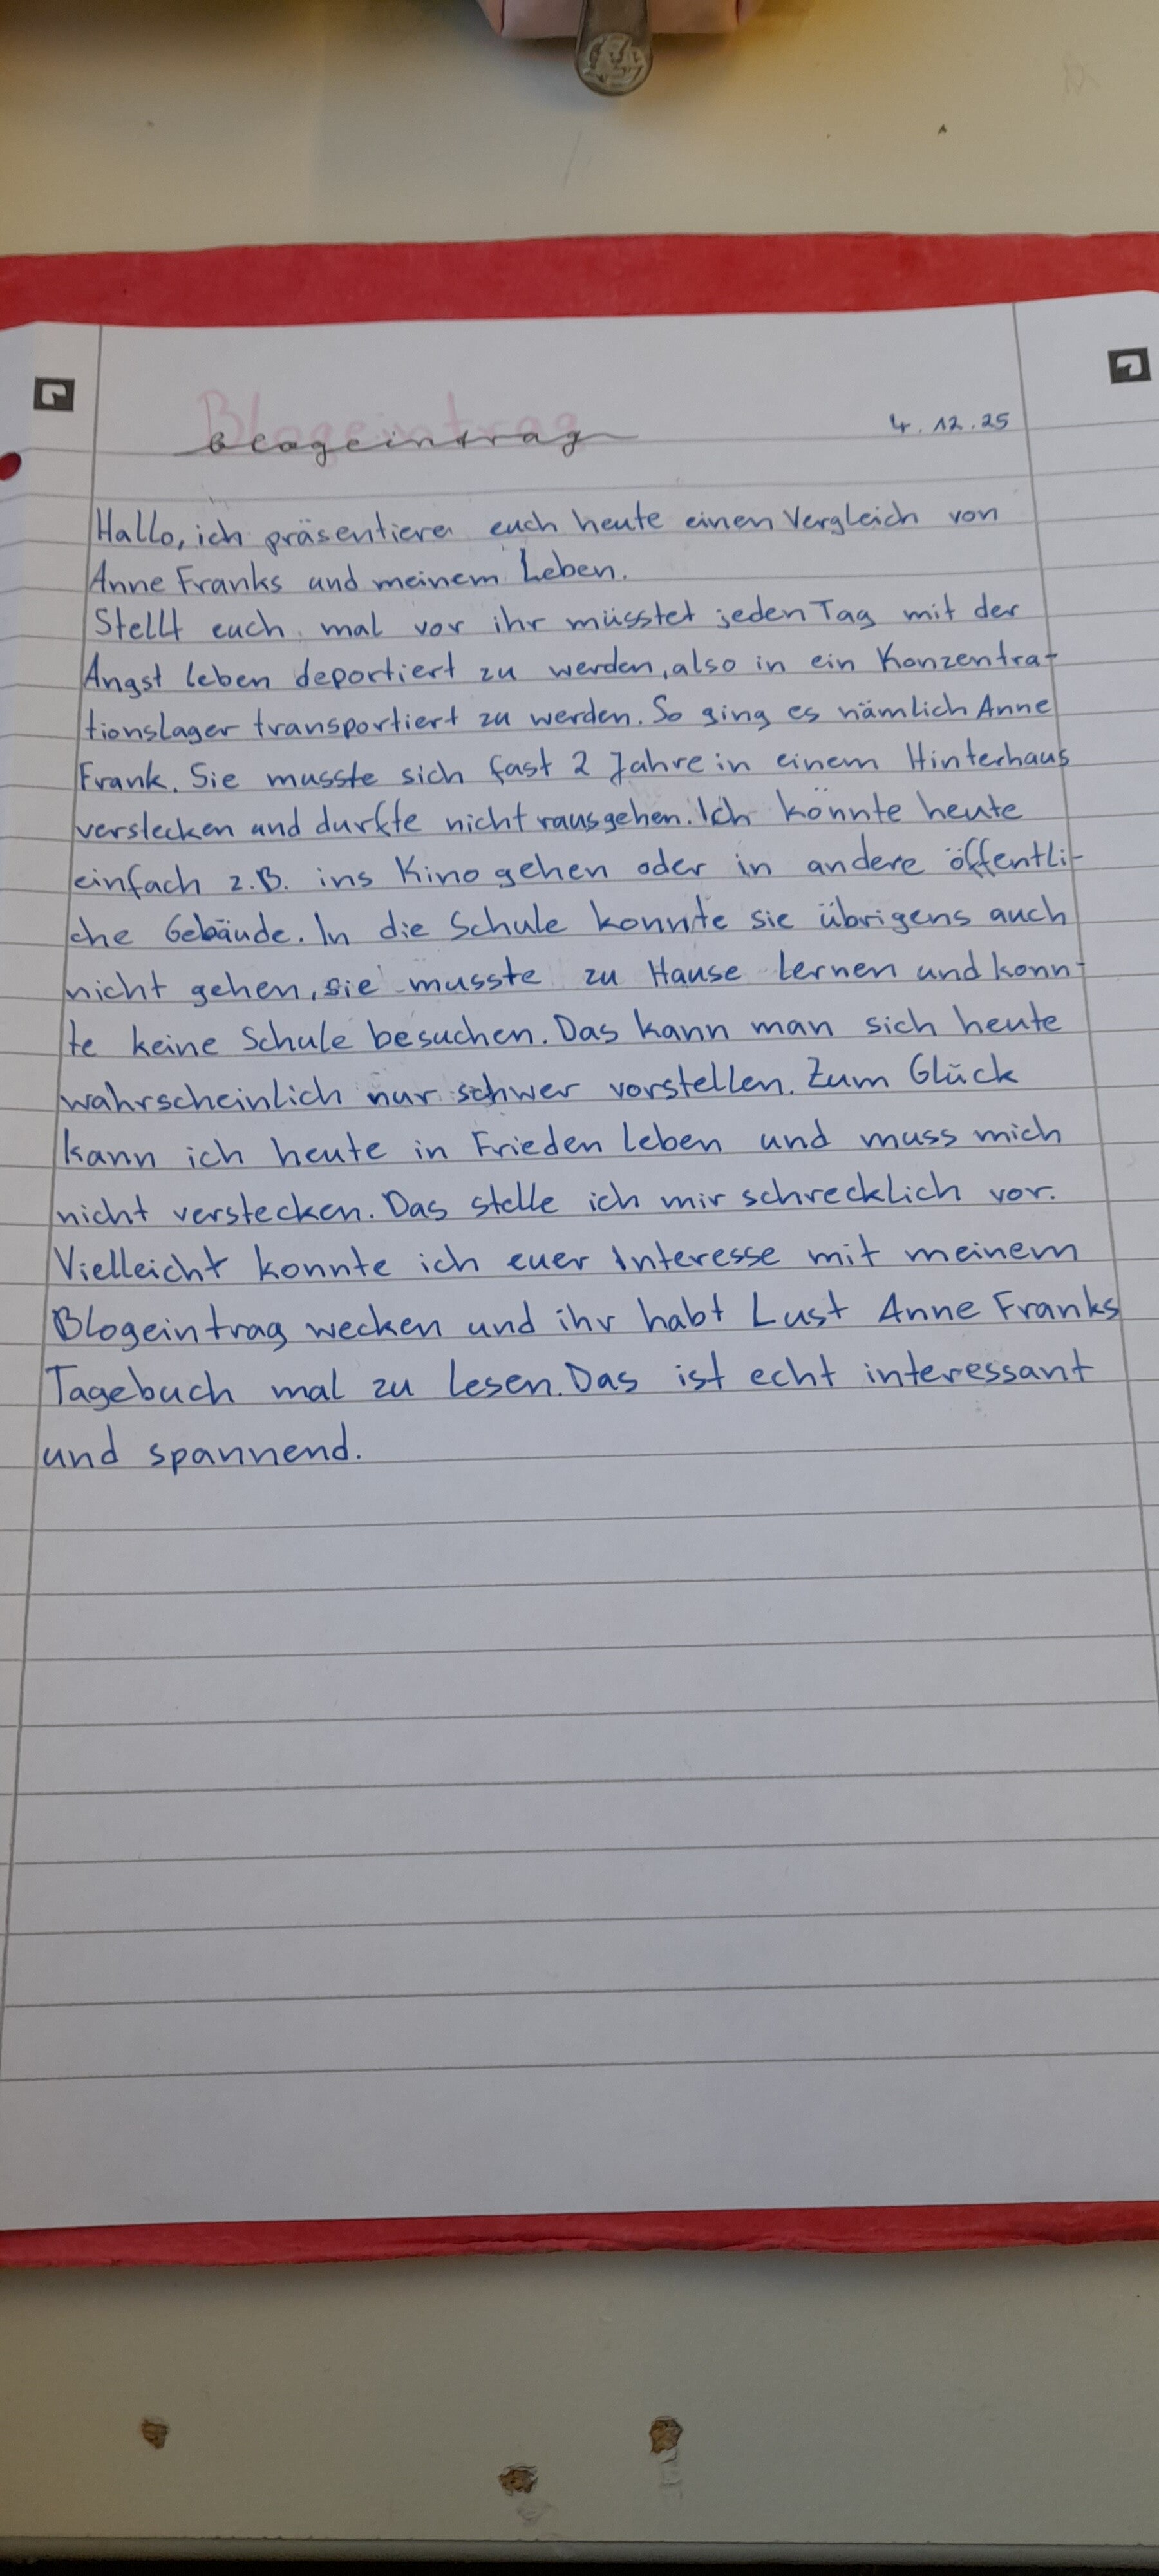 Blogeintrag
4.12.25
Hallo, ich präsentiere euch heute einen Vergleich von
Anne Franks und meinem Leben.
Stellt euch mal vor ihr müsstet jeden Tag mit der
Angst leben deportiert zu werden, also in ein Konzentra-
tionslager transportiert zu werden. So ging es nämlich Anne
Frank. Sie musste sich fast 2 Jahre in einem Hinterhaus
verstecken und durfte nicht rausgehen. Ich könnte heute
einfach z.B. ins Kino gehen oder in andere öffentli-
che Gebäude. In die Schule konnte sie übrigens auch
nicht gehen, sie musste zu Hause lernen und konn-
te keine Schule besuchen. Das kann man sich heute
wahrscheinlich nur schwer vorstellen. Zum Glück
kann ich heute in Frieden leben und muss mich
nicht verstecken. Das stelle ich mir schrecklich vor.
Vielleicht konnte ich euer Interesse mit meinem
Blogeintrag wecken und ihr habt Lust Anne Franks
Tagebuch mal zu lesen. Das ist echt interessant
und spannend.